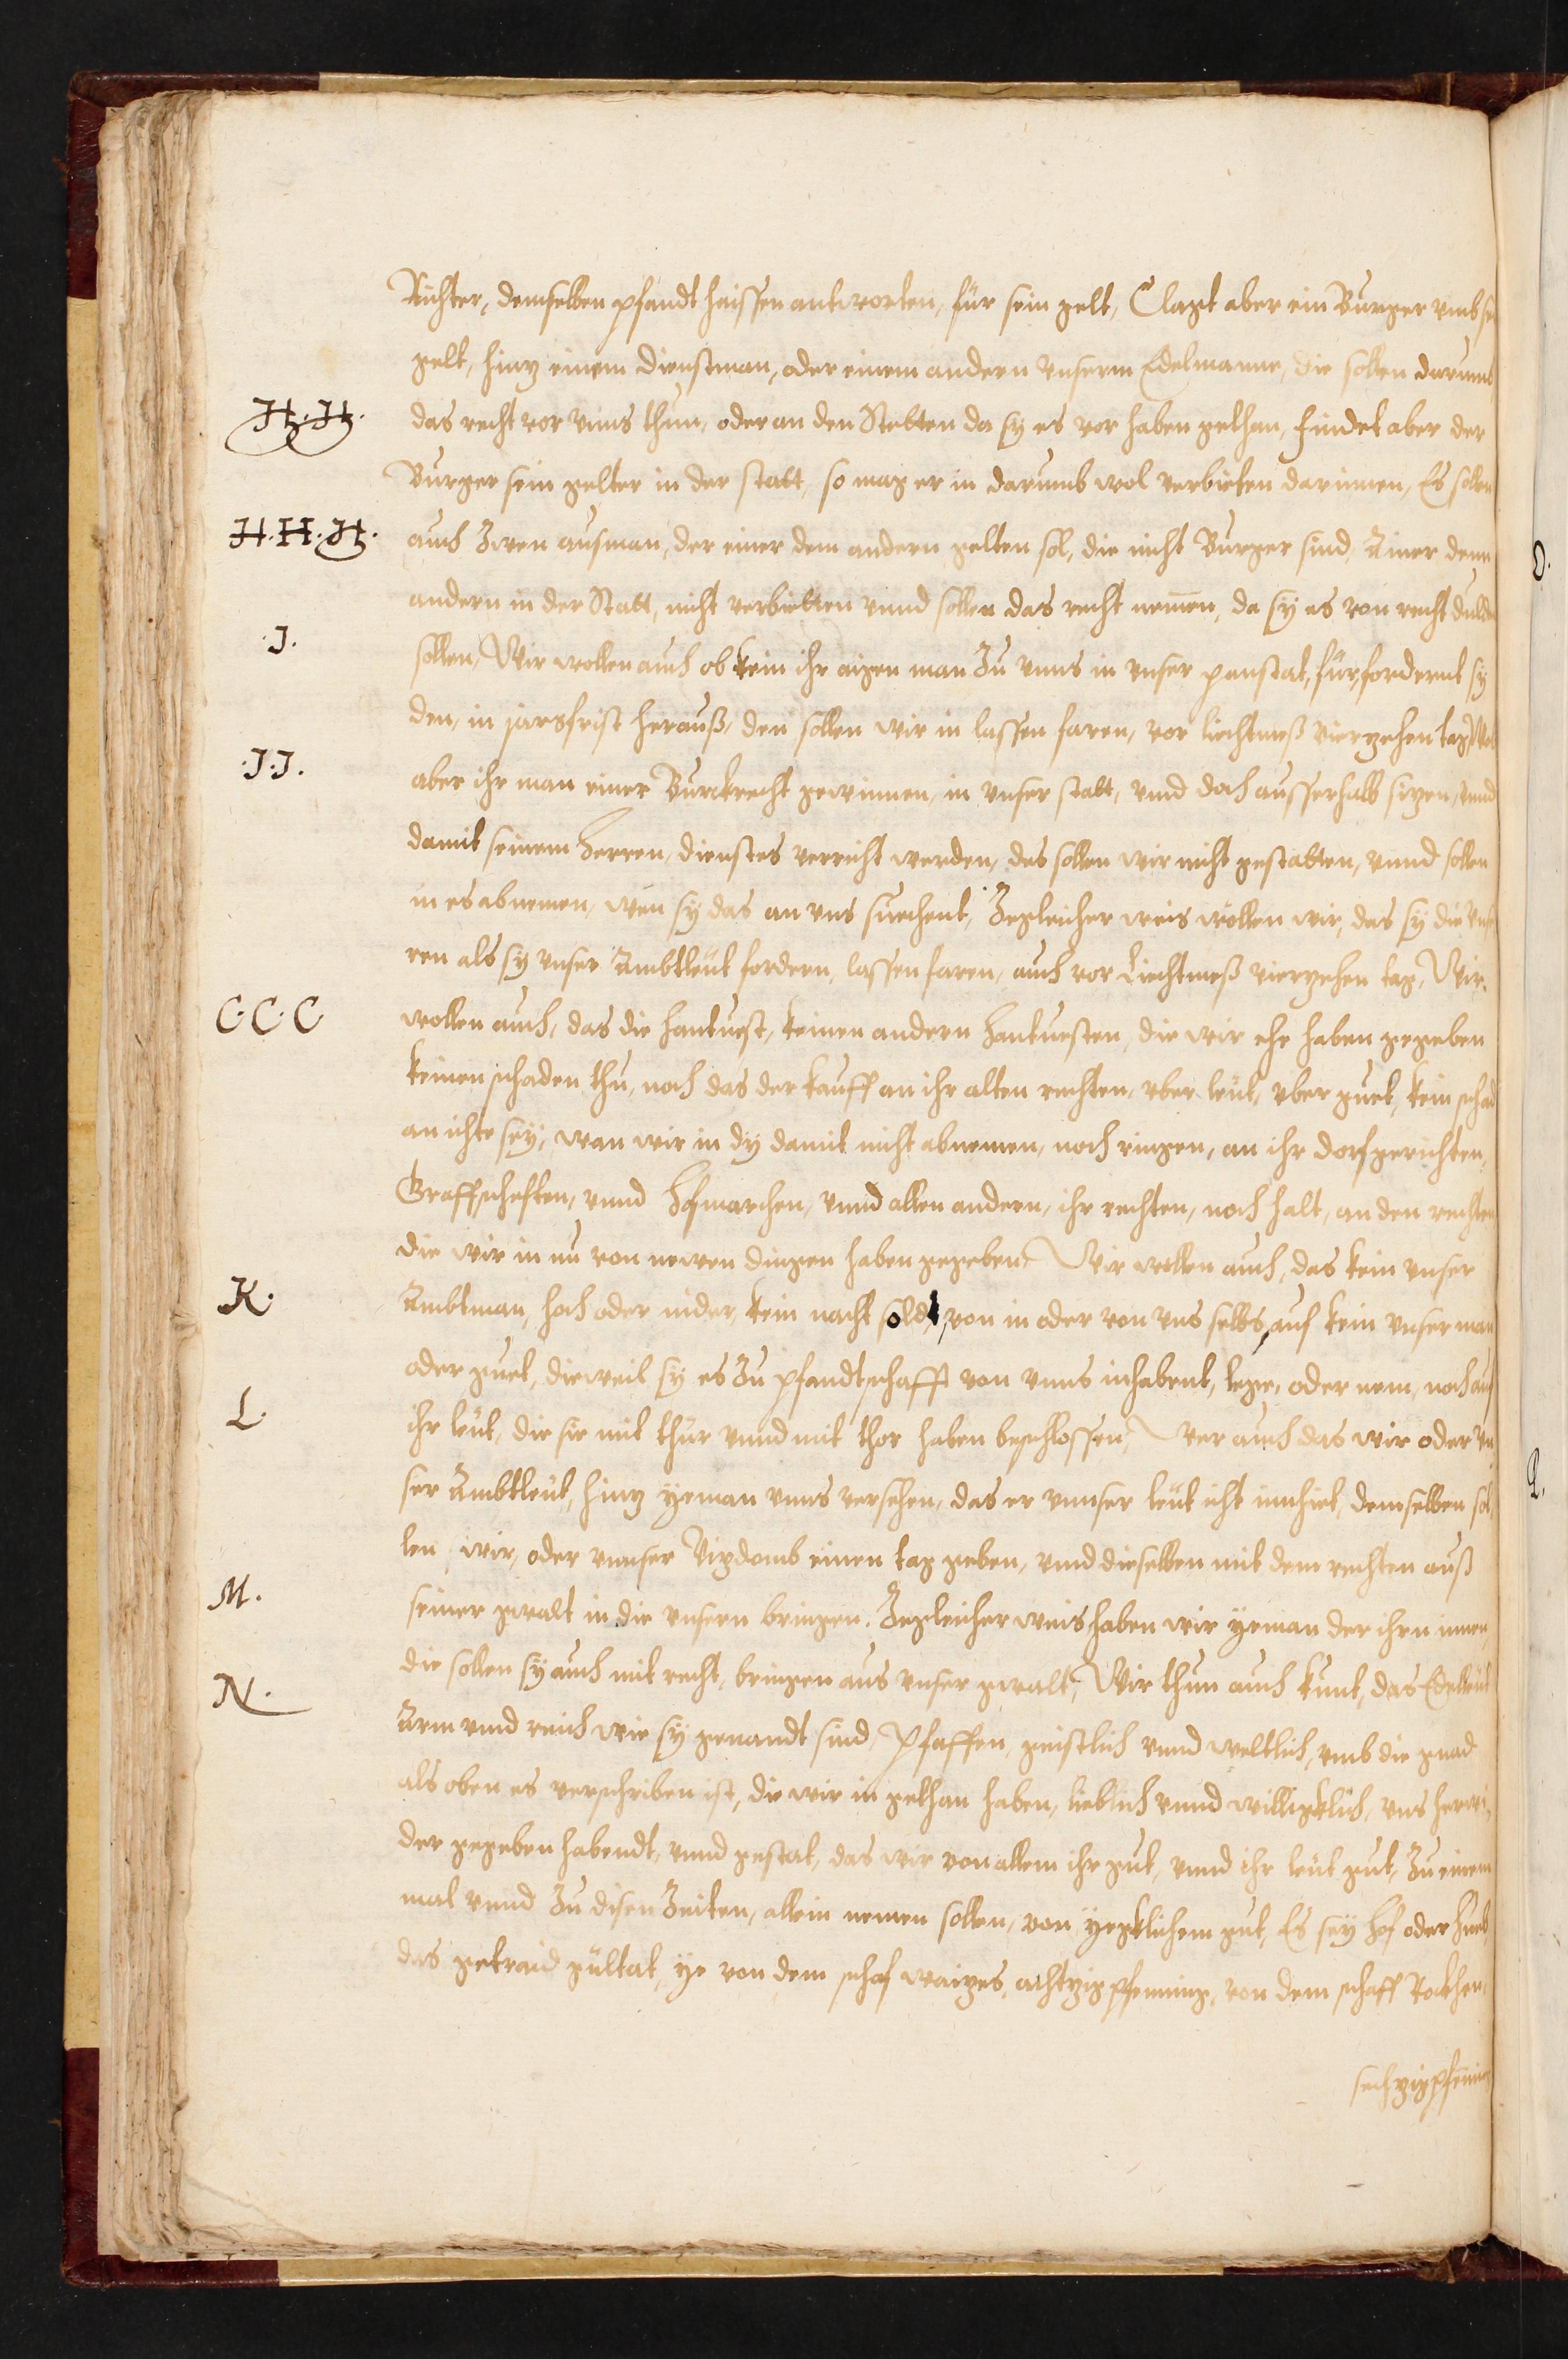 Richter, demselben pfandt haissen antworten, für sein gelt, Clagt aber ein Burger vmb sei
gelt, hinz einem dienstman, oder einem andern vnserm Edelmanne, die sollen darumb
H. H.
das recht vor vnns thun, oder an den Stetten da sy es vor haben gethan, findet aber der
Burger sein gelter in der statt, so mag er in darumb wol verbieten darinnen, Es sollen
H. H. H.
auch Zwen ausman, der einer dem andern gelten sol, die nicht Burger sind, Ainer dem
andern in der Statt, nicht verbietten vnnd sollen das recht nem̄en, da sy es von recht dulde
.J.
sollen, Wir wollen auch ob kein ihr aigen man Zu vnns in vnser panstat, für, fordernt sy
den, in jarsfrist herauß, den sollen wir in lassen faren, vor liechtmeß vierzehen tag, Wel
.J.J.
aber ihr man einer Burckrecht gewinnen, in vnser statt, vnnd doch ausserhalb sizen, vnnd
damit seinem Herren, dienstes verricht werden, des sollen wir nicht gestatten, vnnd sollen
in es abnemen, wen sy das an vns suechent, Zegleicher weis wöllen wir, das sy die vnse
ren als sy vnser Ambtleut fordern, lassen faren, auch vor Liechtmeß vierzehen tag, Wir
C. C. C
wollen auch, das die hantuest, keinen andern Hantuesten, die wir ehe haben gegeben
keinen schaden thu, noch das der kauff an ihr alten rechten, vber leut, vber guet, kein schad
an ichte sey, wan wir in dy damit nicht abnemen, noch ringen, an ihr dorfgerichten,
Graffscheften, vnnd Hofmarchen, vnnd allen andern, ihr rechten, noch halt, an den rechten
die wir in nu von newen dingen haben gegeben, Wir wollen auch, das kein vnser
K.
Ambtman, hoch oder nider, kein nacht sold, von in oder von vns selbs, auf kein vnser man
oder guet, dieweil sy es Zu pfandtschafft von vnns inhabent, lege, oder nem, noch auf
L.
ihr leut, die sie mit thür vnnd mit thor haben beschlossen, Wer auch das wir oder vn
ser Ambtleut, hinz yeman vnns versehen, das er vnnser leut icht innhiet, demselben sol
len wir, oder vnnser Vizdomb einen tag geben, vnnd dieselben mit dem rechten auß
M.
seiner gwalt in die vnsern bringen. Zegleicher weis haben wir yeman der ihrn innen,
die sollen sy auch mit recht, bringen aus vnser gwalt, Wir thun auch kunt, das Edelleut
N.
Arm vnnd reich wie sy genandt sind, Pfaffen, geistlich vnnd weltlich, vmb die gnad
als oben es verschriben ist, die wir in gethan haben, lieblich vnnd williglich, vns herwi,
der gegeben habendt, vnnd gestat, das wir von allem ihr gut, vnnd ihr leut gut, Zu einem
mal vnnd Zu disen Zeiten, allein nemen sollen, von yegklichem gut, Es sey hof oder hueb
das getraid gültat, ye von dem schaf waizes, achtzig pfenning, von dem schaff Rockhen,
sechzig pfenning